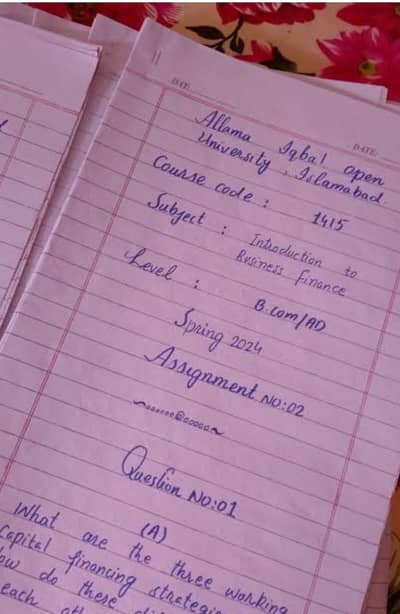 DATE
DATE:
Allama Iqbal open
University, Islamabad
Course code : 1415
Subject : Introduction to
Business finance
Level : B.com/AD
Spring 2024
Assignment NO:02
Question NO:01
(A)
What are the three working
Capital financing strategies
do these
each